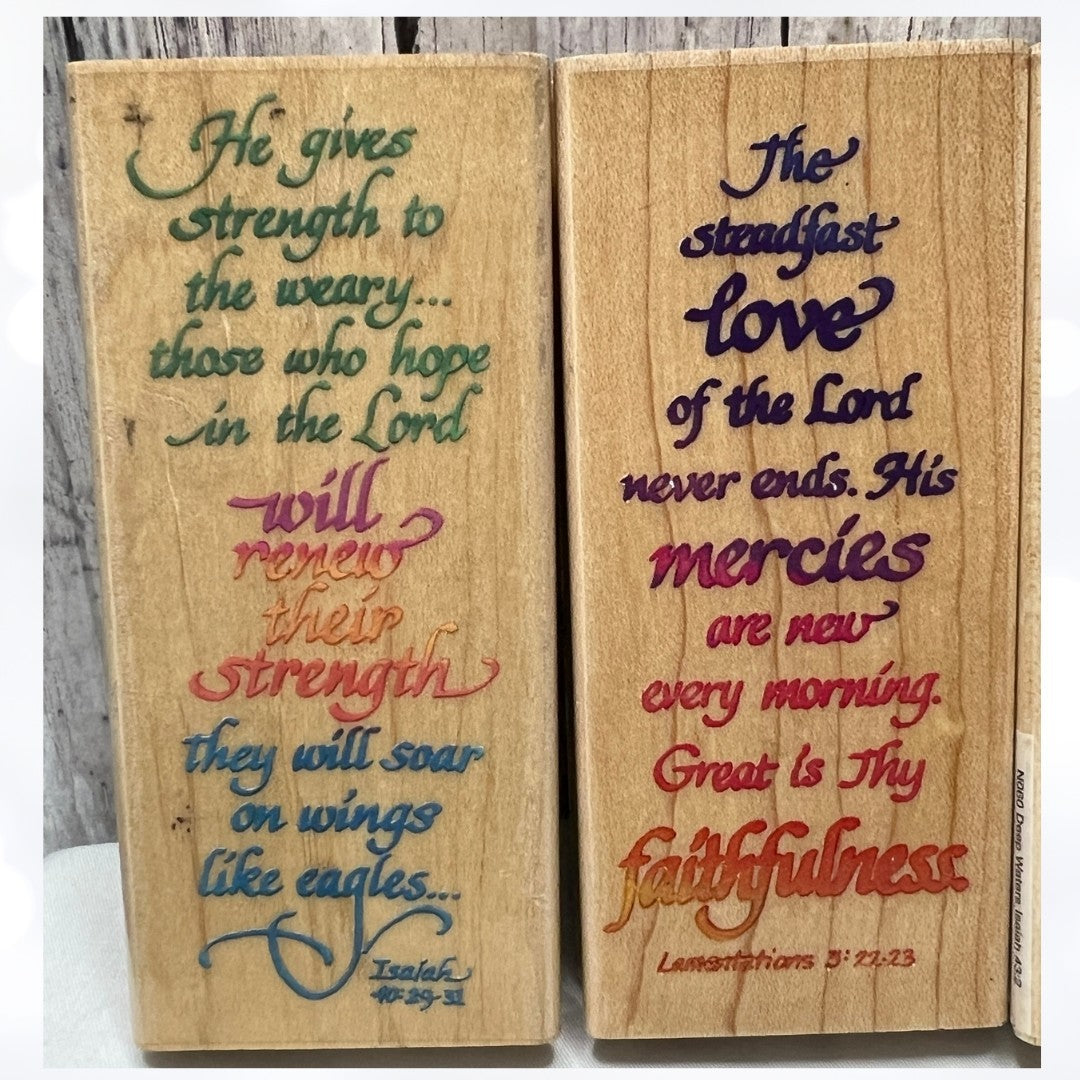 He gives
strength to
the weary...
those who hope
in the Lord
will
renew
their
strength
they will soar
on wings
like eagles...
Isaiah
40:29-31
The
steadfast
love
of the Lord
never ends. His
mercies
are new
every morning.
Great is Thy
faithfulness.
Lamentations 3:22-23
N060 Deep Waters, Isaiah 43:2